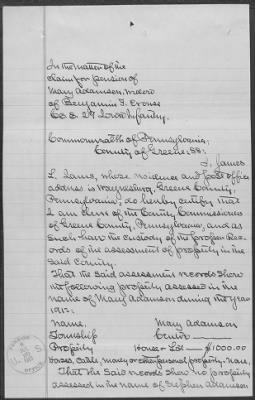 In the matter of the
claim for pension of
Mary Adamson, widow
of Benjamin F.
Co. E. 27 Iowa Infantry.
Commonwealth of Pennsylvania,
County of Greene: SS:
I, James
L. Iams, whose residence and post office
address is Waynesburg, Greene County,
Pennsylvania, do hereby certify that
I am clerk of the County Commissioners
of Greene County, Pennsylvania, and as
such have the custody of the proper rec-
ords of the assessment of property in the
said County.
That the said assessment records show
the following property assessed in the
name of Mary Adamson during the year
1917:
Name, Mary Adamson
Township
Property House & Lot — $1000.00
Horses, Cattle, money or other personal property, None.
That the said records show no property
assessed in the name of Stephen Adamson